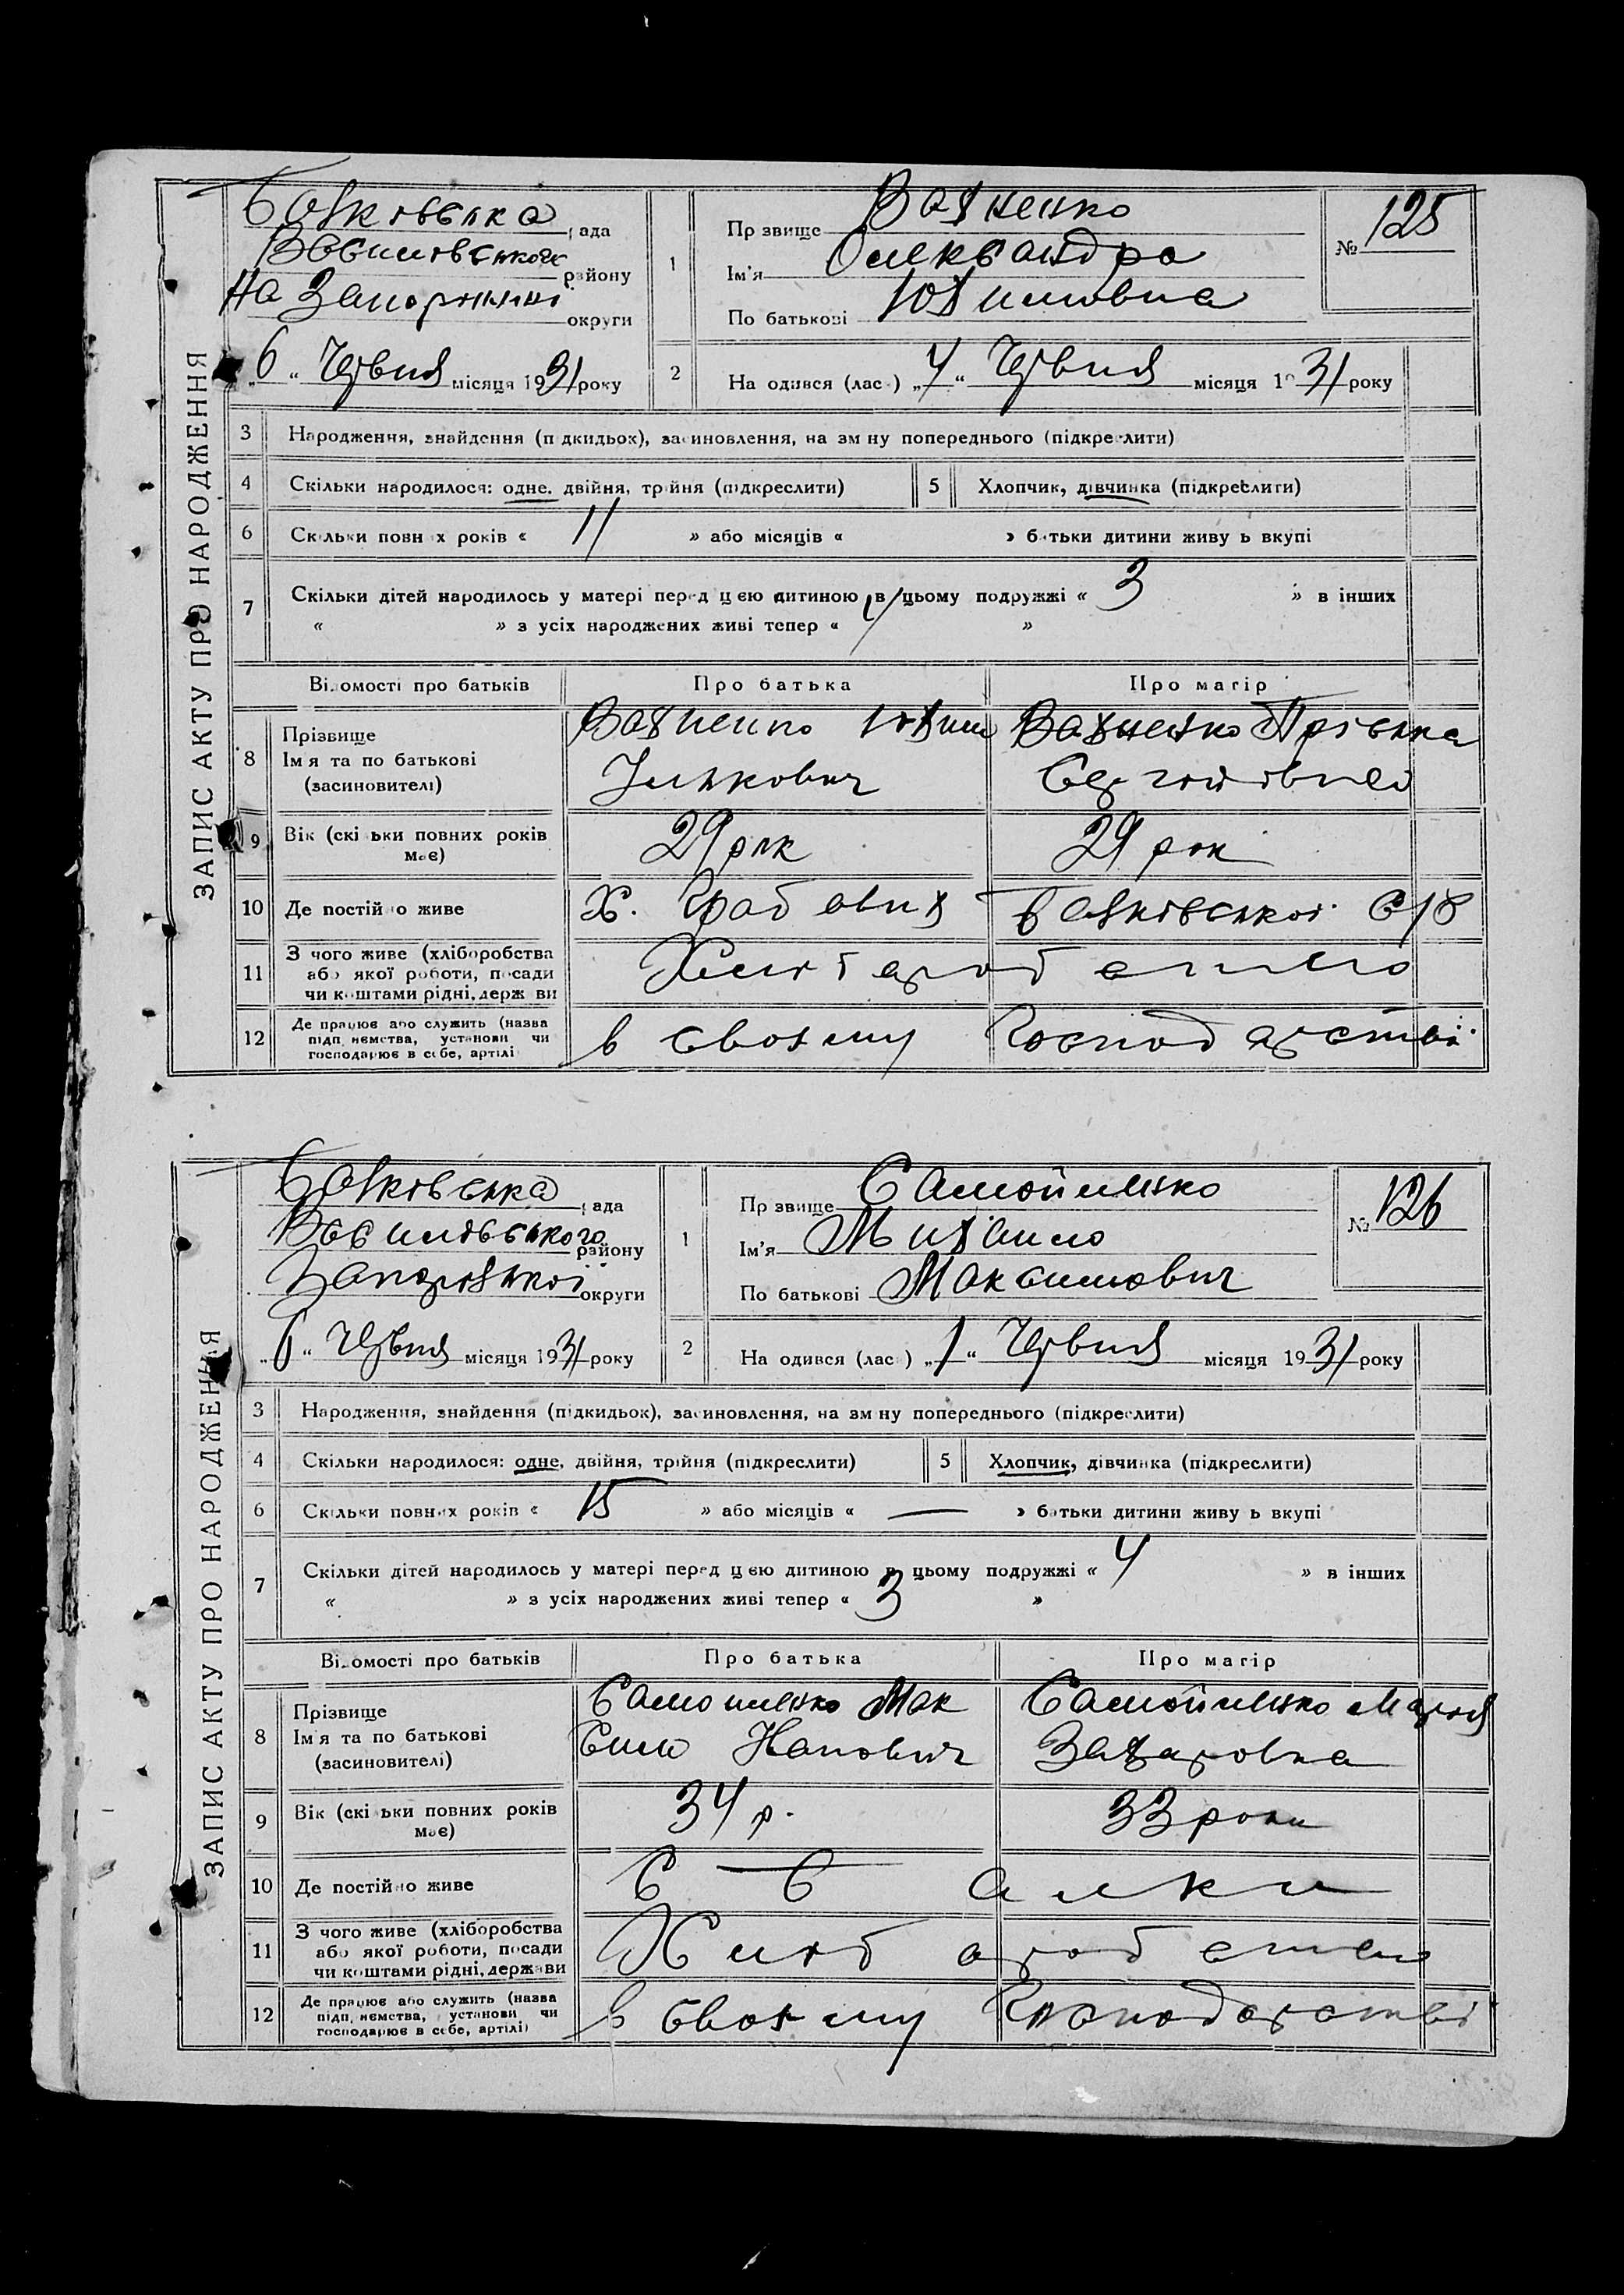 ЗАПИС АКТУ ПРО НАРОДЖЕННЯ
Балківська рада
Василівського району
На Запоріжжі округи
„6“ Червня місяця 1931 року
1 Прізвище Вахненко
Ім'я Олександра
По батькові Юхимовна
№ 125
2 Народився (лась) „4“ Червня місяця 1931 року
3 Народження, знайдення (підкидьок), засиновлення, на зміну попереднього (підкреслити)
4 Скільки народилося: одне, двійня, трійня (підкреслити)
5 Хлопчик, дівчинка (підкреслити)
6 Скільки повних років « 11 » або місяців « » батьки дитини живуть вкупі
7 Скільки дітей народилось у матері перед цією дитиною в цьому подружжі « 3 » в інших
« » з усіх народжених живі тепер « »
Відомості про батьків Про батька Про матір
8 Прізвище Ім'я та по батькові (засиновителі)
Вахненко Юхим
Вахненко
Сергіївна
9 Вік (скільки повних років має) 29 рік 29 рок
10 Де постійно живе Х. Балківської С/Р
11 З чого живе (хліборобства або якої роботи, посади чи коштами рідні, держави Хліборобства
12 Де працює або служить (назва підприємства, установи чи господарює в себе, артілі) в своєму Господарстві
ЗАПИС АКТУ ПРО НАРОДЖЕННЯ
Балківська рада
Василівського району
Запорізької округи
„6“ Червня місяця 1931 року
1 Прізвище Самойленко
Ім'я Михайло
По батькові Максимович
№ 126
2 Народився (лась) „1“ Червня місяця 1931 року
3 Народження, знайдення (підкидьок), засиновлення, на зміну попереднього (підкреслити)
4 Скільки народилося: одне, двійня, трійня (підкреслити)
5 Хлопчик, дівчинка (підкреслити)
6 Скільки повних років « 15 » або місяців « — » батьки дитини живуть вкупі
7 Скільки дітей народилось у матері перед цією дитиною в цьому подружжі « 4 » в інших
« » з усіх народжених живі тепер « 3 »
Відомості про батьків Про батька Про матір
8 Прізвище Ім'я та по батькові (засиновителі)
Самойленко Мак
сим
Самойленко Марія
Захаровна
9 Вік (скільки повних років має) 34 р. 33 роки
10 Де постійно живе С Балки
11 З чого живе (хліборобства або якої роботи, посади чи коштами рідні, держави Хліборобства
12 Де працює або служить (назва підприємства, установи чи господарює в себе, артілі) в своєму Господарстві